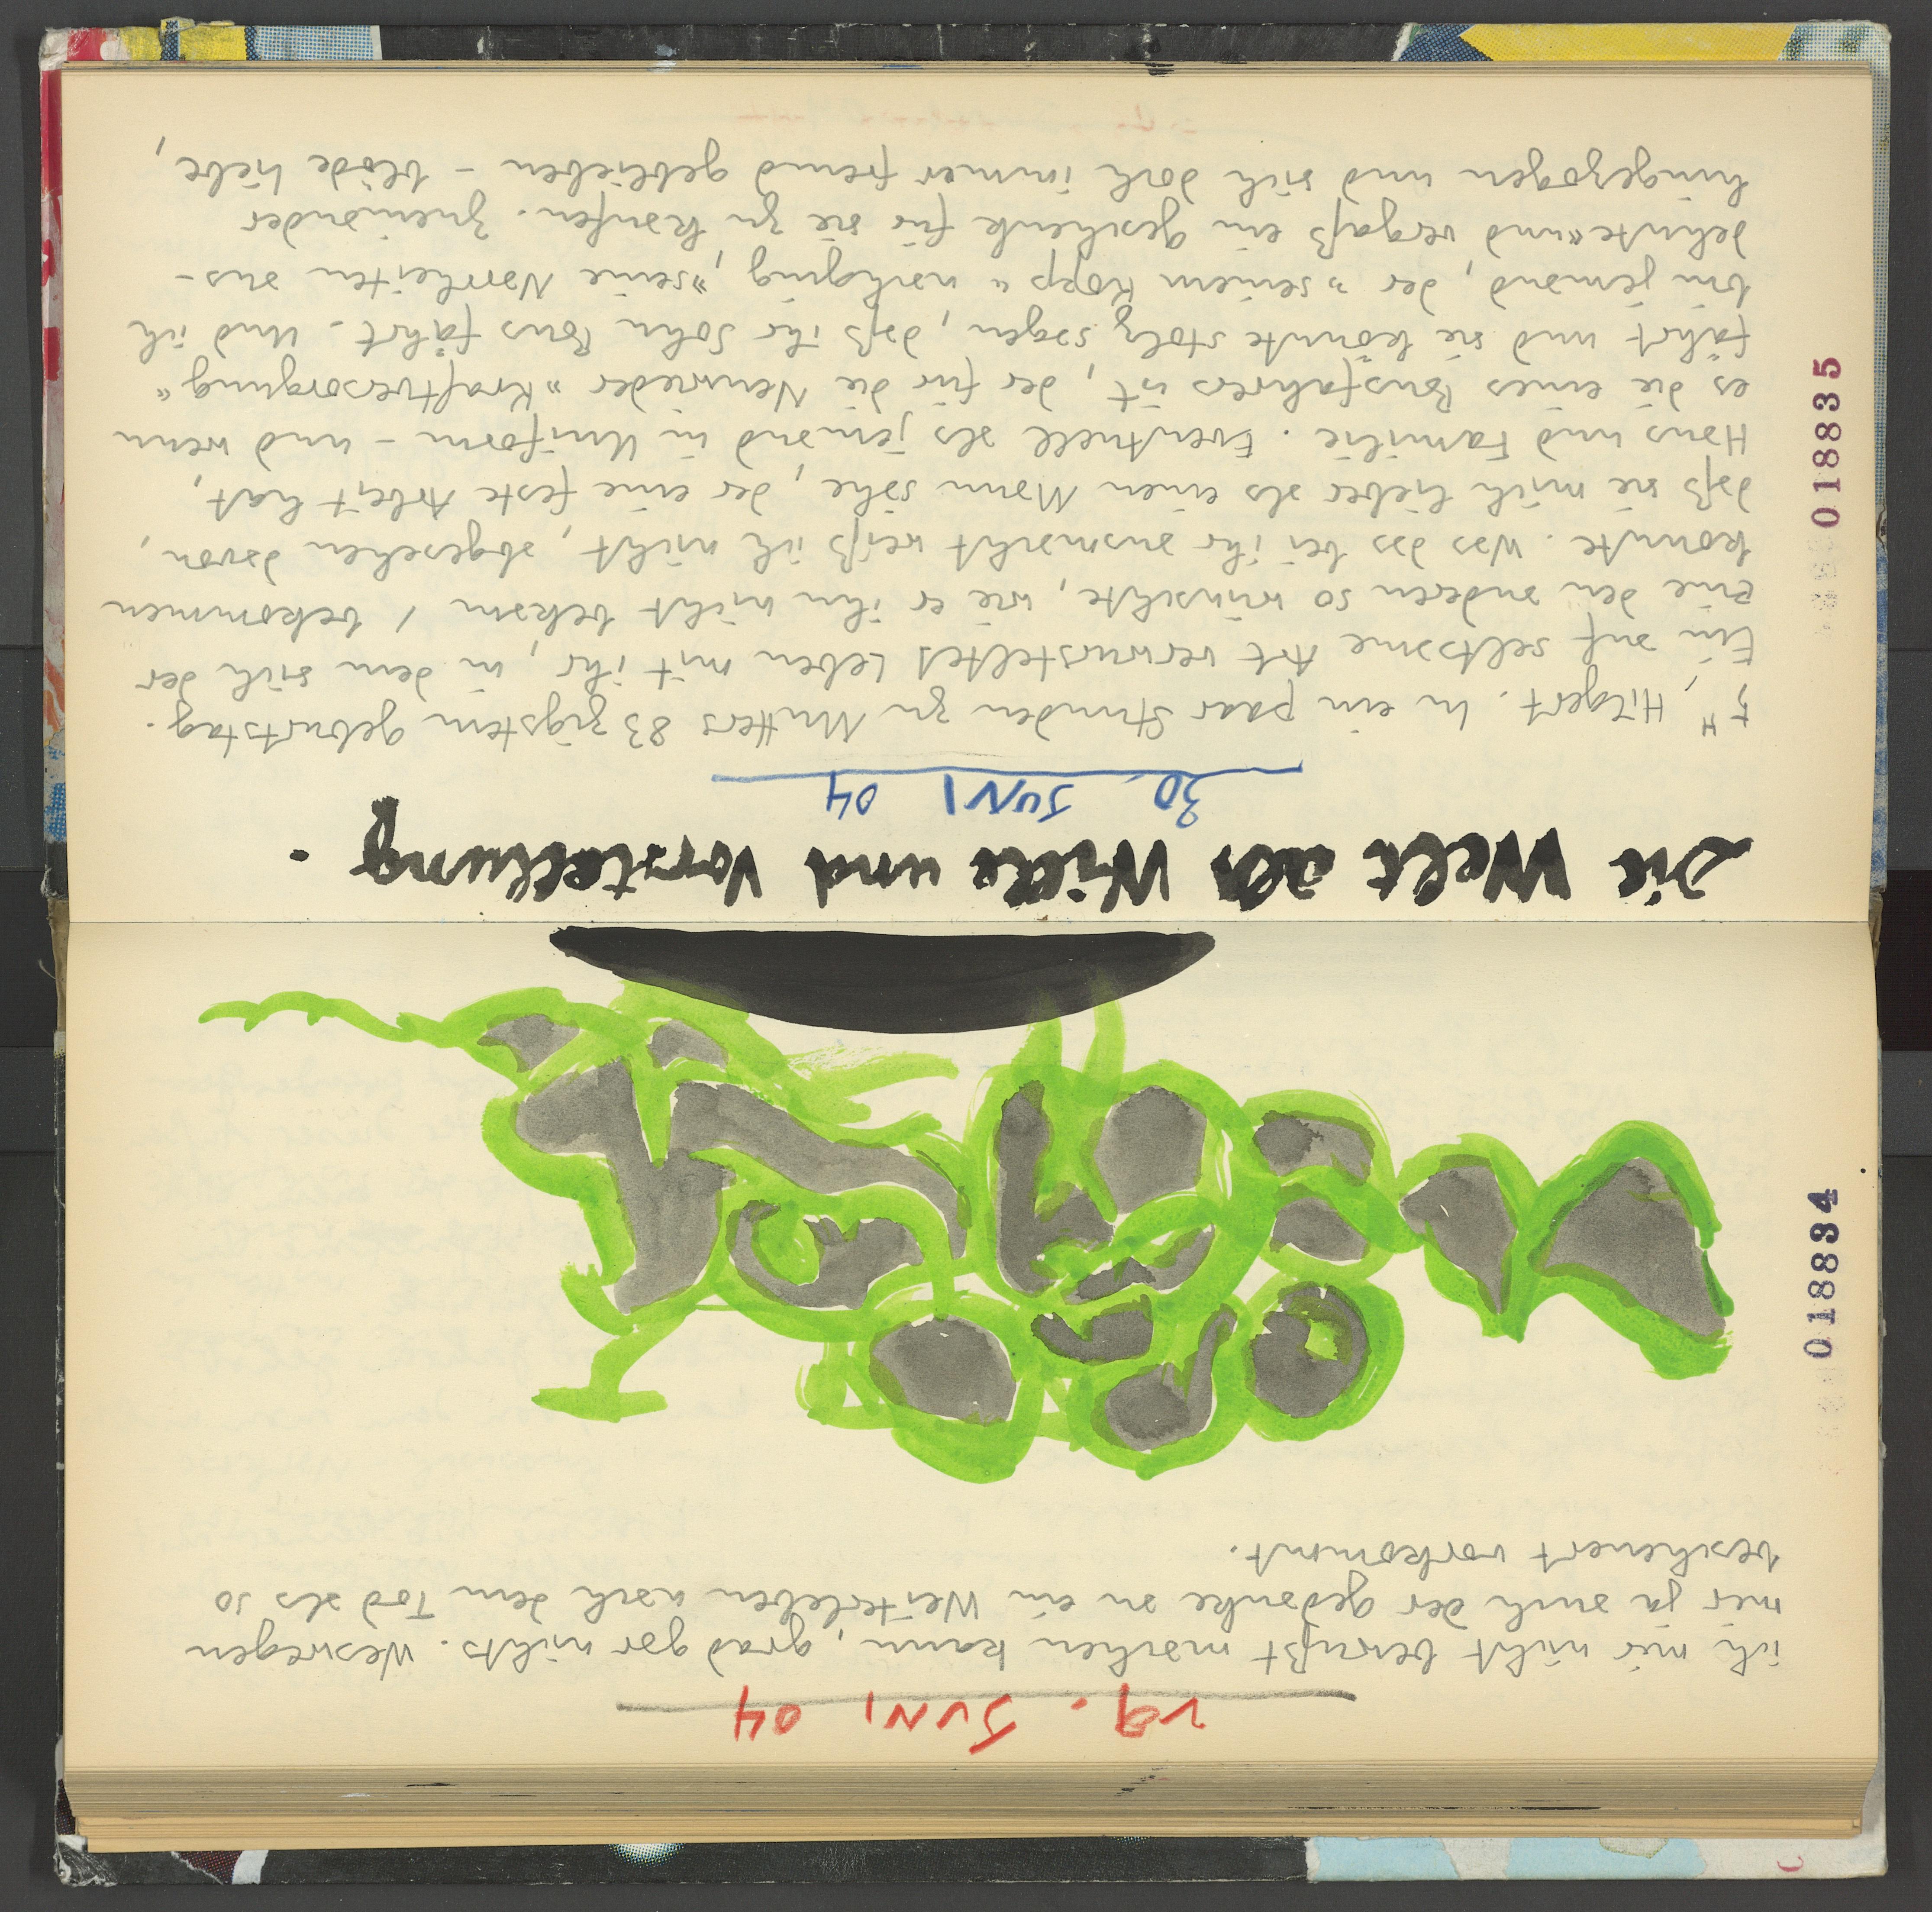 29. JUNI 04
ich mir nicht bewußt machen kann, grad gar nichts. Weswegen
mir ja auch der gedanke an ein Weiterleben nach dem Tod als so
bescheuert vorkommt.
018834
Die Welt als Wille und Vorstellung.
30. JUNI 04
5H, Hilgert. In ein paar Stunden zu Mutters 83 zigstem geburtstag.
Ein, auf seltsame Art verwursteltes Leben mit ihr, in dem sich der
eine den anderen so wünschte, wie er ihn nicht bekam / bekommen
konnte. Was das bei ihr ausmacht weiß ich nicht, abgesehen davon,
daß sie mich lieber als einen Mann sähe, der eine feste Arbeit hat,
Haus und Familie. Eventuell als jemand in Uniform – und wenn
es die eines Busfahrers ist, der für die Neuwieder "Kraftversorgung"
fährt und sie könnte stolz sagen, daß ihr Sohn Bus fährt. Und ich
bin jemand, der "seinem Kopp" nachging, "seine Narrheiten aus-
dehnte" und vergaß ein geschenk für sie zu kaufen. Zueinander
hingezogen und sich doch immer fremd geblieben – blöde Liebe,
018835